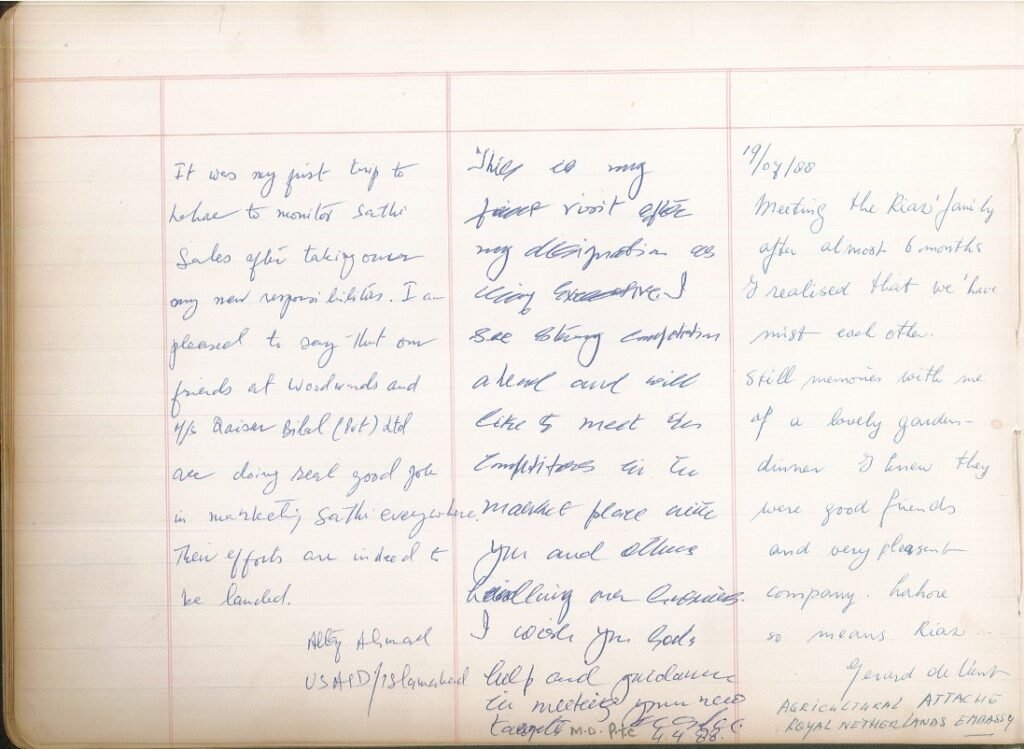 It was my first trip to
Lahore to monitor Sathi
Sales after taking over
my new responsibilities. I am
pleased to say that our
friends at Woodwards and
M/s Qaiser Bilal (Pvt) Ltd
are doing real good job
in marketing Sathi everywhere.
Their efforts are indeed to
be lauded.
Ahmad
USAID/Islamabad
This is my
first visit after
my designation as
Executive. I
see strong competition
ahead and will
like to meet the
Competitors in the
market place with
you and others
handling our business.
I wish you God's
help and guidance
in meeting your new
targets
M.D. PTC
4.4.88.
19/07/88
Meeting the Riaz' family
after almost 6 months
I realised that we 'have
mist each other.
Still memories with me
of a lovely garden-
dinner I knew they
were good friends
and very pleasant
company. Lahore
so means Riaz
Gerard de
AGRICULTURAL ATTACHE
ROYAL NETHERLANDS EMBASSY